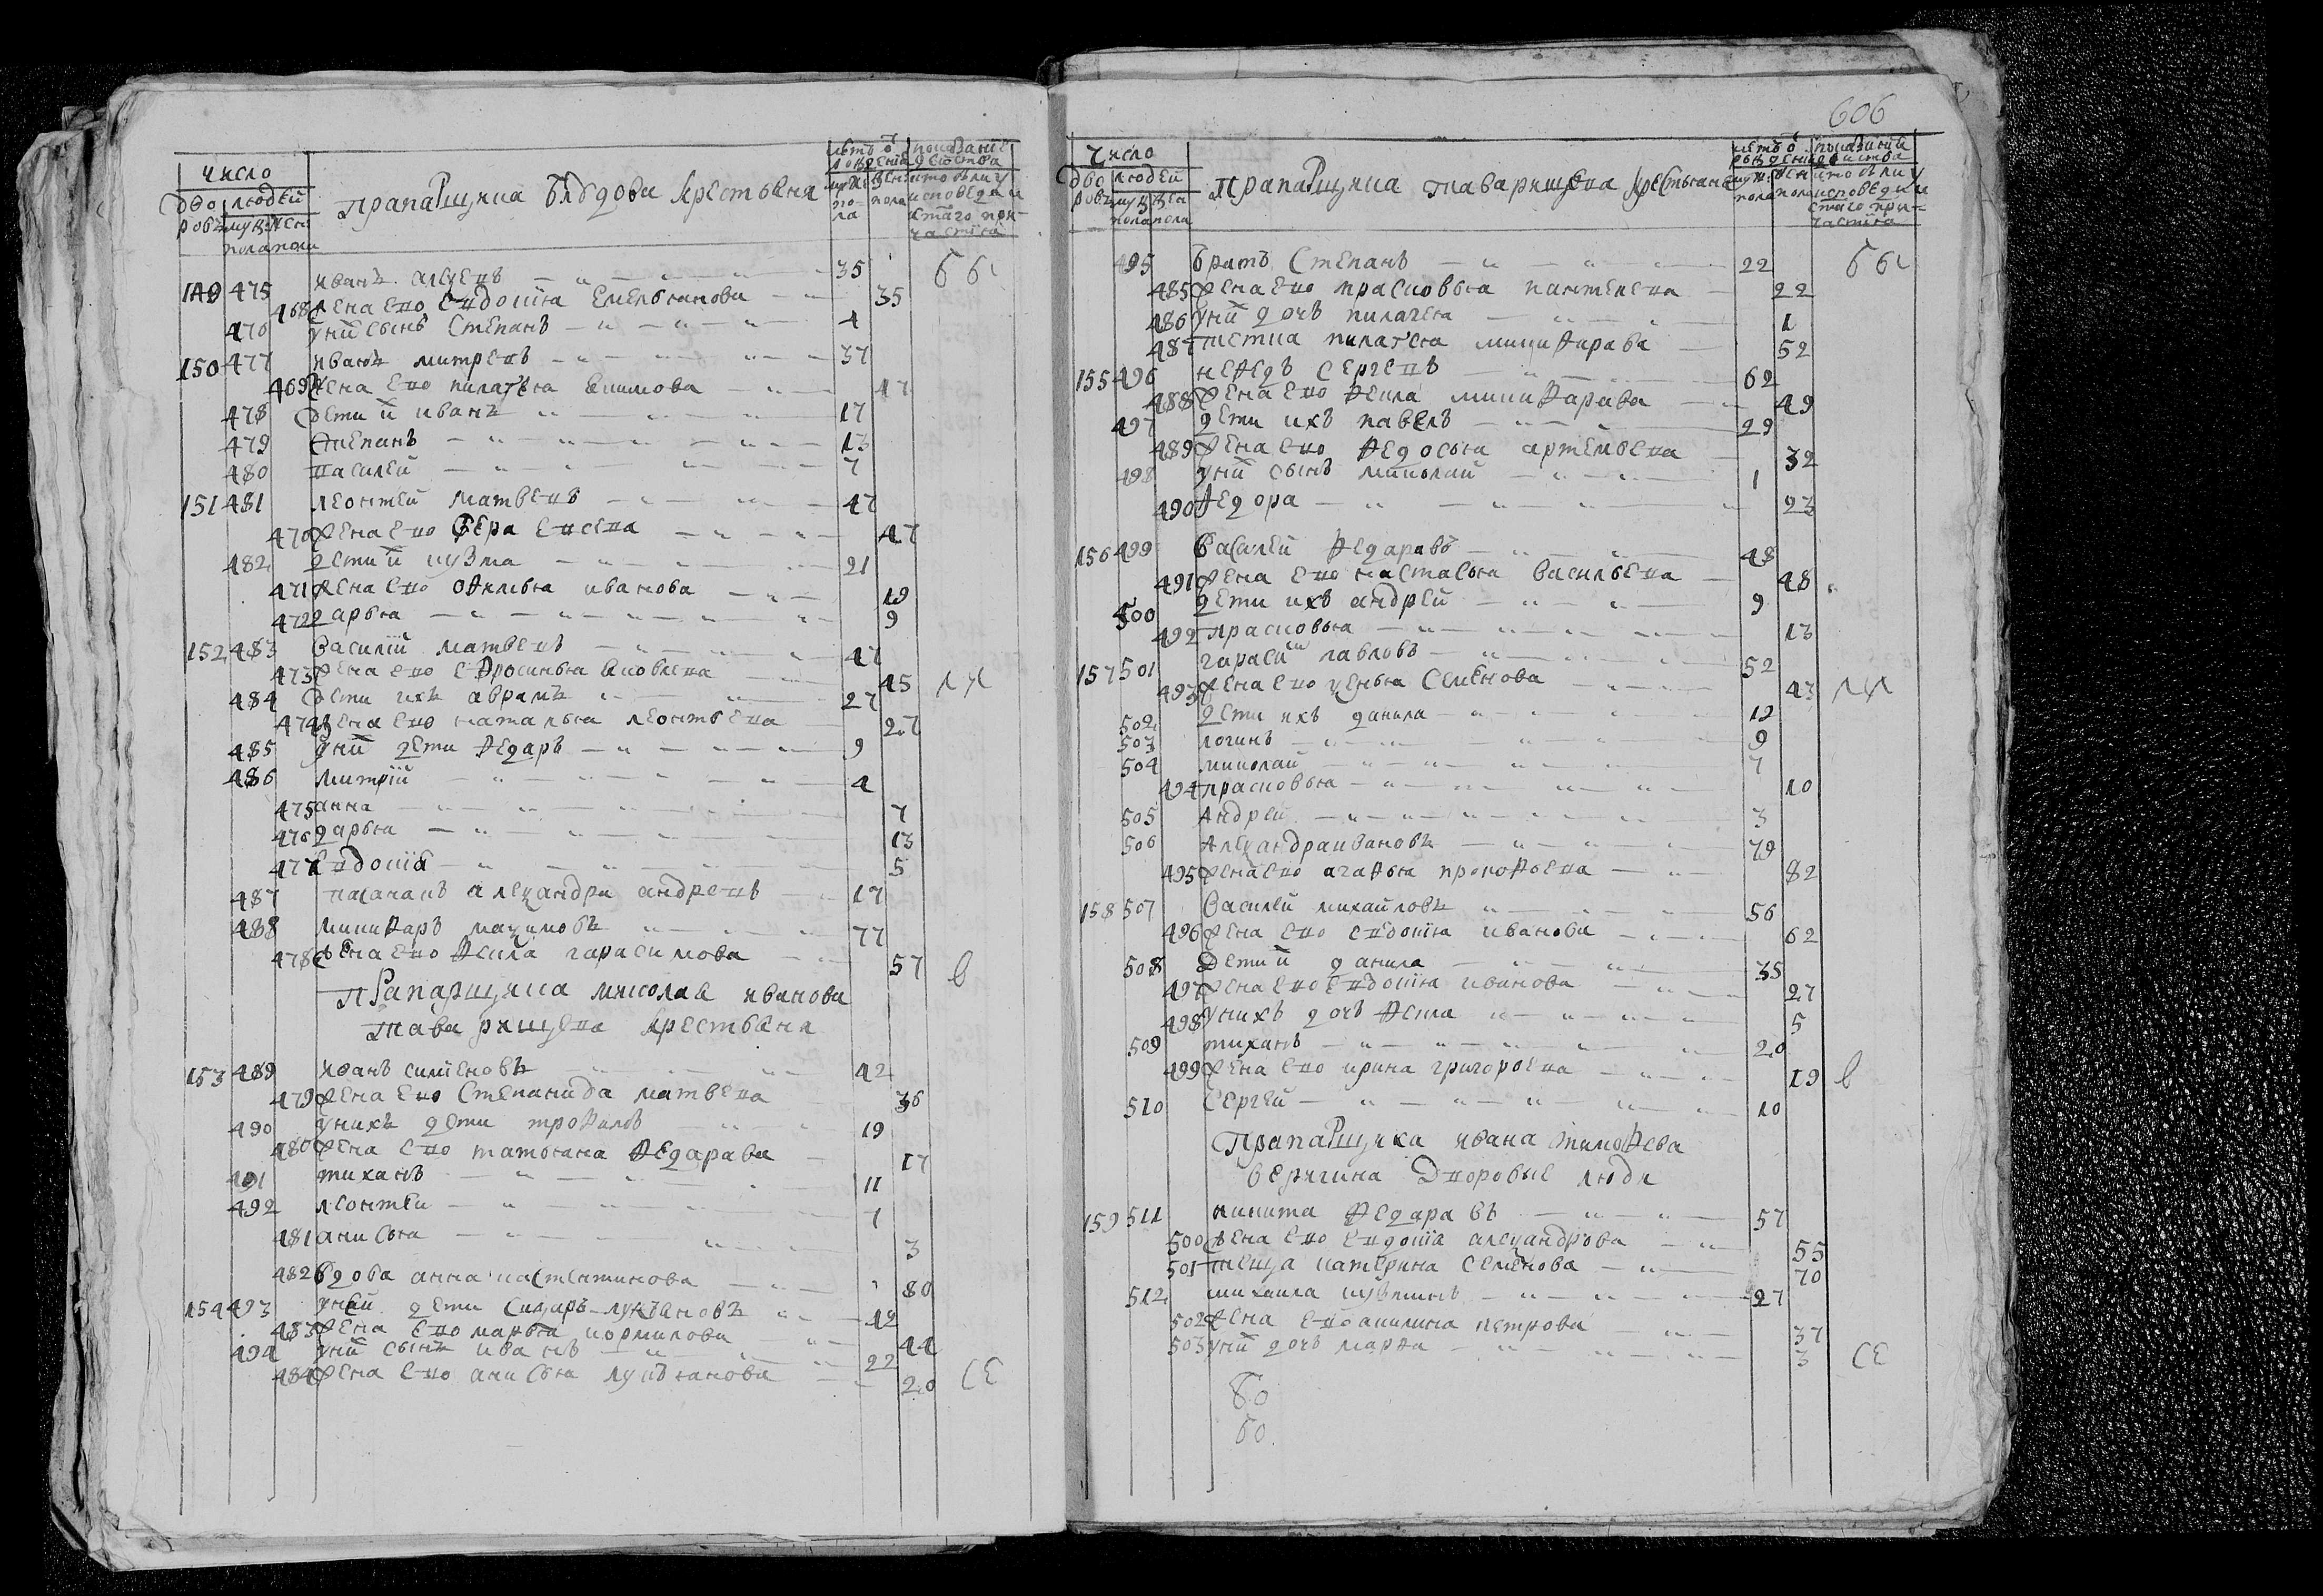 число
дво людей
ровъ мужска женска
пола пола
Прапарщика Бѣгдова крестьяня
лѣтъ ѿ рожденїя
муж: жен:
пола пола
показанїе действа
кто былъ у
исповеди и
с:таго при-
частїя
149 475 иванъ алѯеевъ 35 бы
468 жена ево евдотїя емельянова 35
476 у ний сынъ степанъ 4
150 477 иванъ митревъ 37
469 жена ево пилагѣя якимова 47
478 дети й иванъ 17
479 степанъ 13
480 василей 7
151 481 леонтей матвеевъ 47
470 жена ево вера евсева 47
482 дети й кузма 21
471 жена ево офимья иванова 19
472 дарья 9
152 483 василїй матвеевъ 47
473 жена ево ефросинья яковлева 45 лѝ
484 дети ихъ аврамъ 27
474 жена ево наталья леонтьева 27
485 у ний дети федаръ 9
486 митрїй 4
475 анна 7
476 дарья 13
477 евдотїя 5
487 алеѯандра андревъ 17
488 никифаръ маѯимовъ 77
478 жена ево фекла гарасимова 57 в
Прапарщика николая иванова
таварищева крестьяня
153 489 иванъ симїеновъ 42
479 жена ево степанида матвева 36
490 у нихъ дети трофимъ 19
480 жена ево татьяна федарава 17
491 тиханъ 11
492 леонтей 7
481 анисья 3
482 вдова анна костентинова 80
154 493 у ней дети сидаръ лукьяновъ 42
483 жена ево марья кормилова 44
494 у ний сынъ иванъ 22
484 жена ево анисья лукьянова 20 се
606
число
дво людей
ровъ мужска женска
пола пола
Прапарщика таварищева крестьяне
лѣтъ ѿ рожденїя
муж: жен:
пола пола
показанїй действа
кто былъ у
исповеди и
с:таго при-
частїя
495 братъ степанъ 22 бы
485 жена ево прасковья пантелева 22
486 у ний дочъ пилагея 1
487 тетка пилагея микифарава 52
155 496 нефедъ сергеевъ 62
488 жена ево фекла микифарава 49
497 дети ихъ павелъ 29
489 жена ево федосья артемьева 32
498 у ний сынъ николай 1
490 федора 23
156 499 василей федаравъ 48
491 жена ево настасья васильева 48
500 дети ихъ андрей 9
492 прасковья 13
157 501 гарасїй павловъ 52
493 жена ево ѯенья семенова 43 лѝ
502 дети ихъ данила 12
503 логинъ 9
504 николай 7
494 прасковья 10
505 андрей 3
506 алеѯандра ивановъ 79
495 жена ево агафья прокофьева 82
158 507 василей михайловъ 56
496 жена ево евдотїя иванова 62
508 дети й данила 35
497 жена ево евдотїя иванова 27
498 у нихъ дочъ фекла 5
509 тиханъ 20
499 жена ево ирина григорьева 19 в
510 сергей 10
Прапарщика ивана тимофева
веригина дворовые люди
159 511 никита федаравъ 57
500 жена ево евдотїя алеѯандрова 55
501 теща катерина семенова 70
512 михаила кузминъ 27
502 жена ево акилина петрова 37
503 у ний дочъ марфа 3 се
80
60